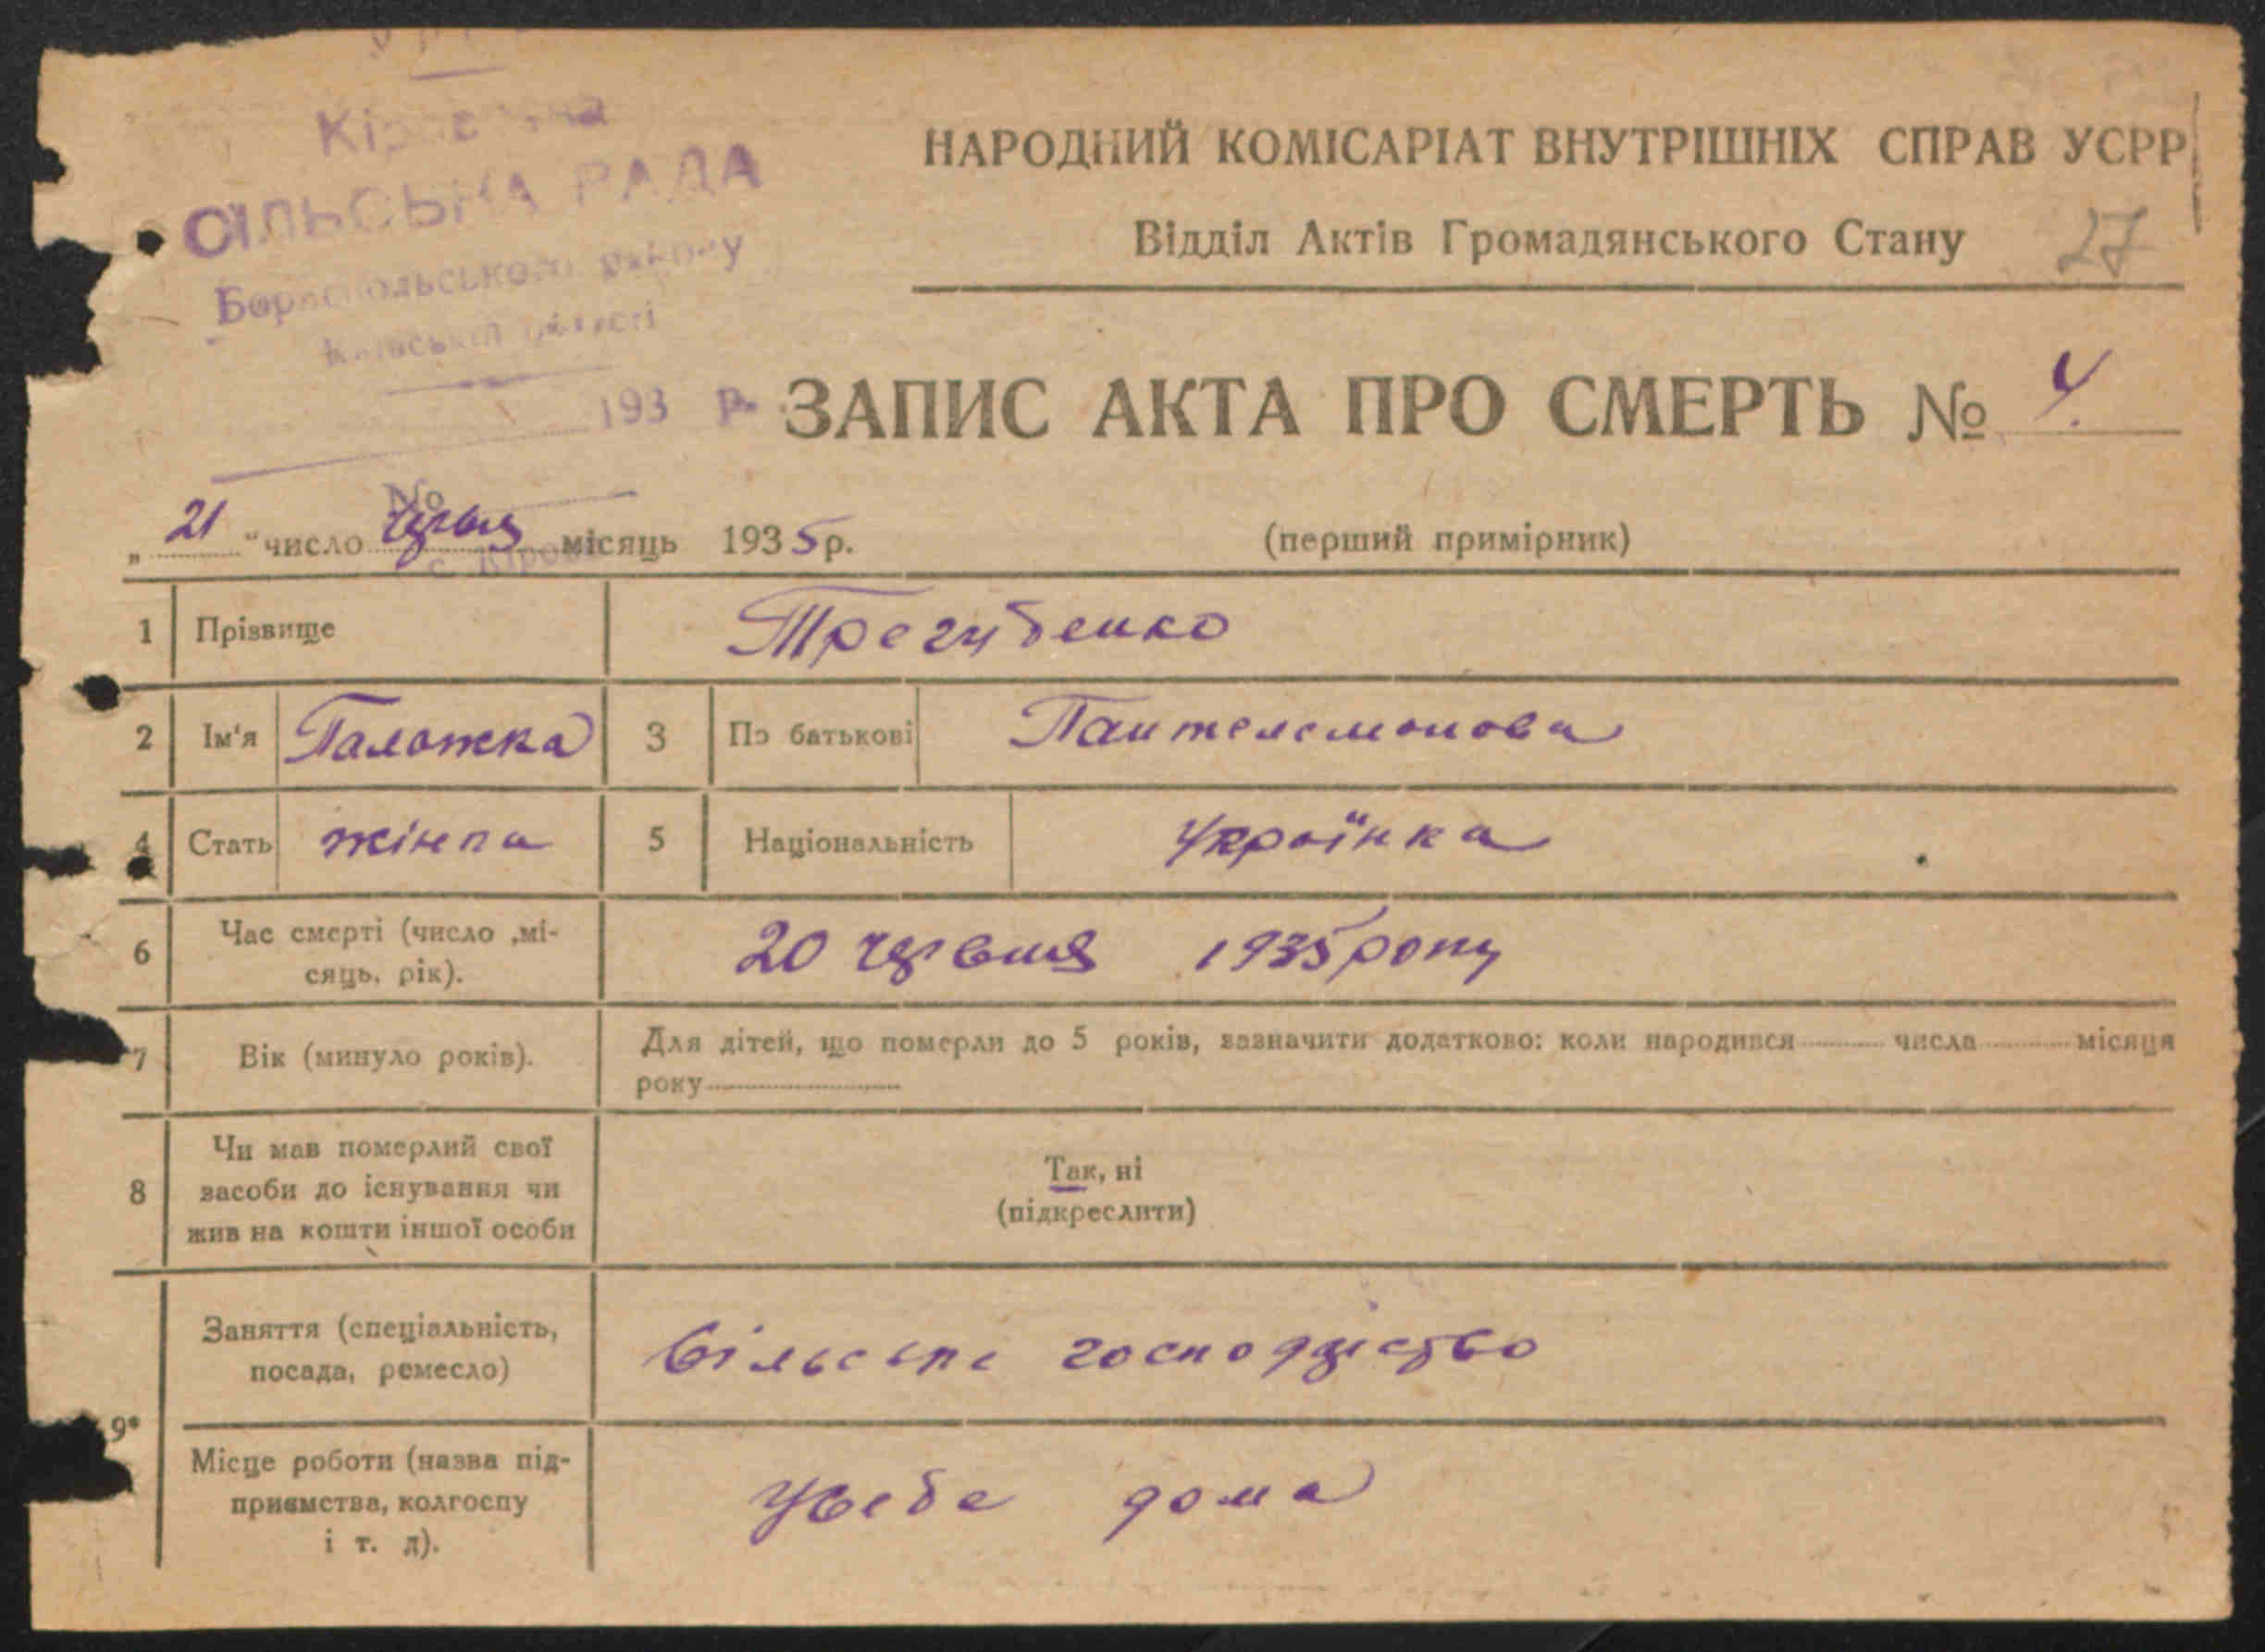 СІЛЬСЬКА РАДА
Бориспольського району
Київської області
193 р.
НАРОДНИЙ КОМІСАРІАТ ВНУТРІШНІХ СПРАВ УСРР
Відділ Актів Громадянського Стану
27
ЗАПИС АКТА ПРО СМЕРТЬ № 4
№
„ 21 “ число червня місяць 1935 р.
(перший примірник)
1 Прізвище Трегубенко
2 Ім'я 3 По батькові Пантелемонова
4 Стать жінка 5 Національність Українка
6 Час смерті (число ,мі-
сяць, рік).
20 червня 1935 року
7 Вік (минуло років).
Для дітей, що померли до 5 років, зазначити додатково: коли народився числа місяця
року
8 Чи мав померлий свої
засоби до існування чи
жив на кошти іншої особи
Так, ні
(підкреслити)
9* Заняття (спеціальність,
посада, ремесло)
сільське господарство
Місце роботи (назва під-
приємства, колгоспу
і т. д).
усебе дома